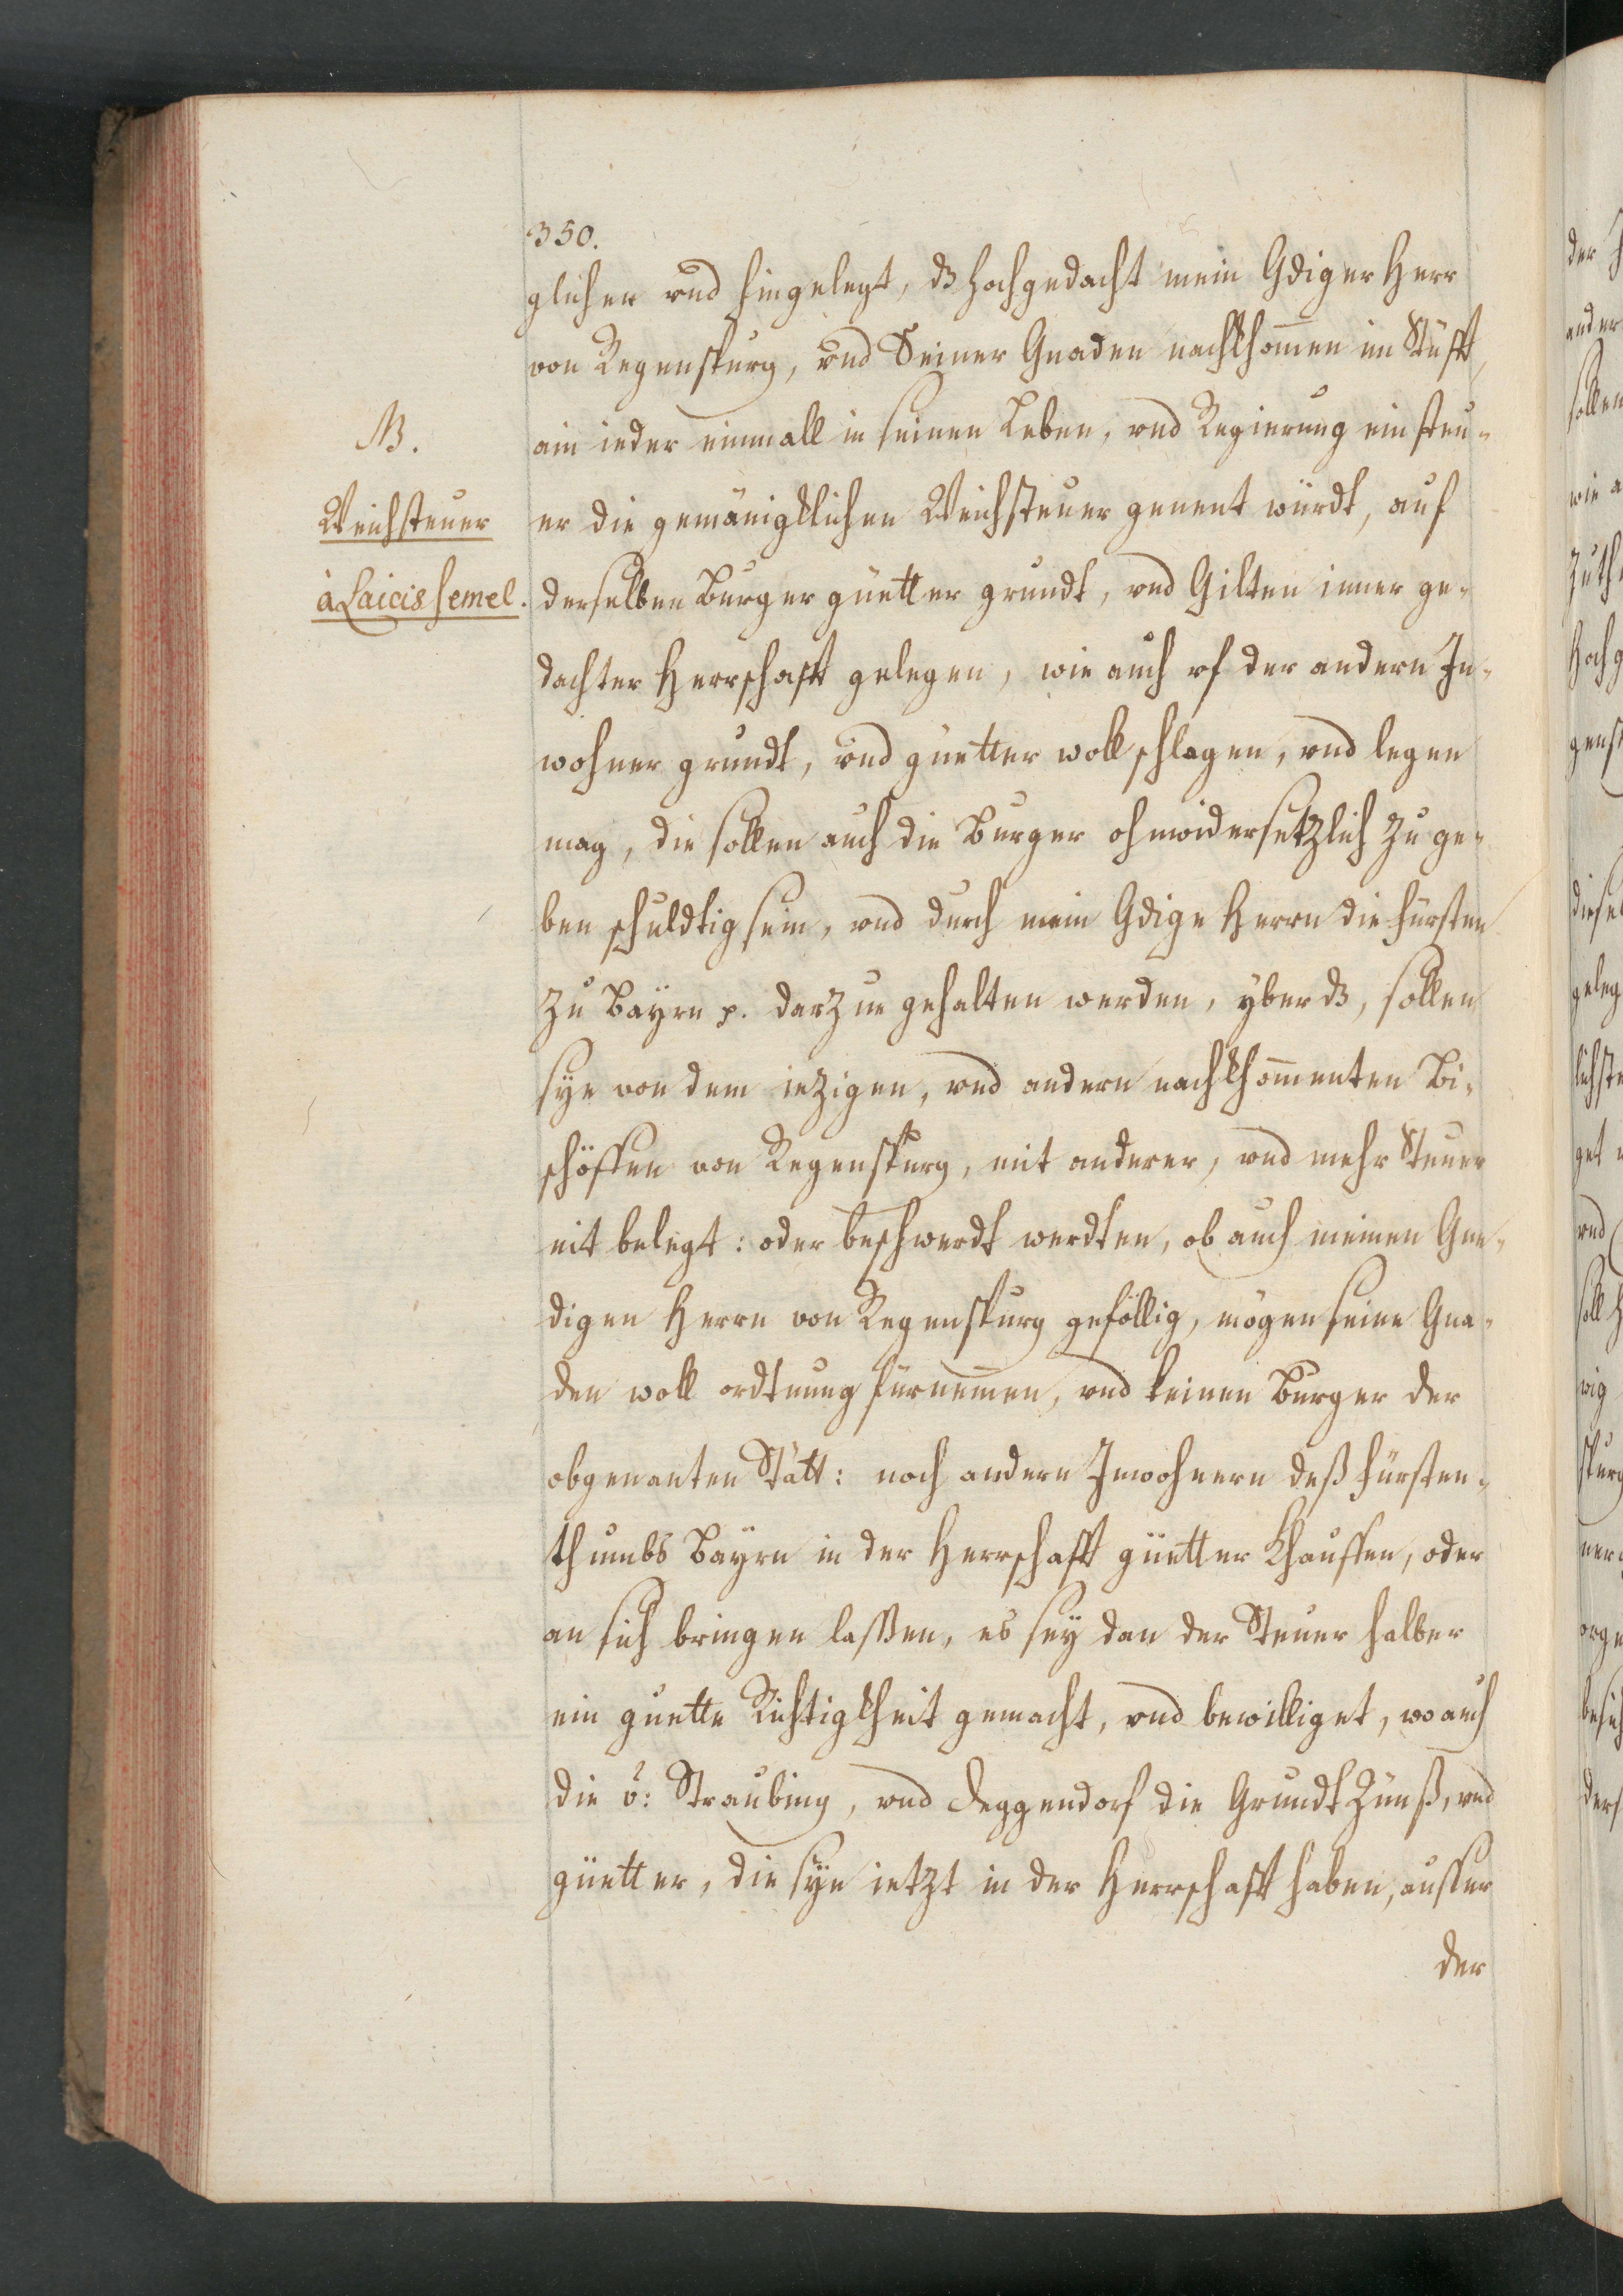 350.
glichen vnd hingelegt, dz hochgedacht mein Gdiger Herr
von Regenspurg, vnd Seiner Gnaden nachkhomen im Stüfft,
NB.
ain ieder einmall in seinen Leben, vnd Regierung ein steu-
Weichsteuer
er die gemänigklichen Weichsteuer genent würdt, auf
à Laicis semel.
derselben Burger güetter grundt, vnd Gilten inner ge-
dachter Herrschafft gelegen, wie auch vf der andern In-
wohner grundt, vnd güetter woll schlagen, vnd legen
mag, die sollen auch die Burger ohnwidersetzlich zu ge-
ben schuldtig sein, vnd durch mein Gdige Herrn die fürsten
zu Bayrn p. darzue gehalten werden, yber dz, sollen
sye von dem iezigen, vnd andern nachkhommenten Bi-
schöffen von Regenspurg, mit anderer, vnd mehr Steuer
nit belegt: oder beschwerdt werdten, ob auch meinen Gne-
digen Herrn von Regenspurg geföllig, mögen seine Gna-
den woll ordtnung fürnemen, vnd keinen Burger der
obgenanten Stätt: noch andern Inwohnern deß fürsten-
thumbs Bayrn in der Herrschafft güetter Khauffen, oder
an sich bringen lassen, es sey dan der Steuer halber
ein guette Richtigkheit gemacht, vnd bewilliget, wo auch
die v: Straubing, vnd Deggendorf die Grundt Zünß, vnd
güetter, die sye ietzt in der Herrschafft haben, ausser
der